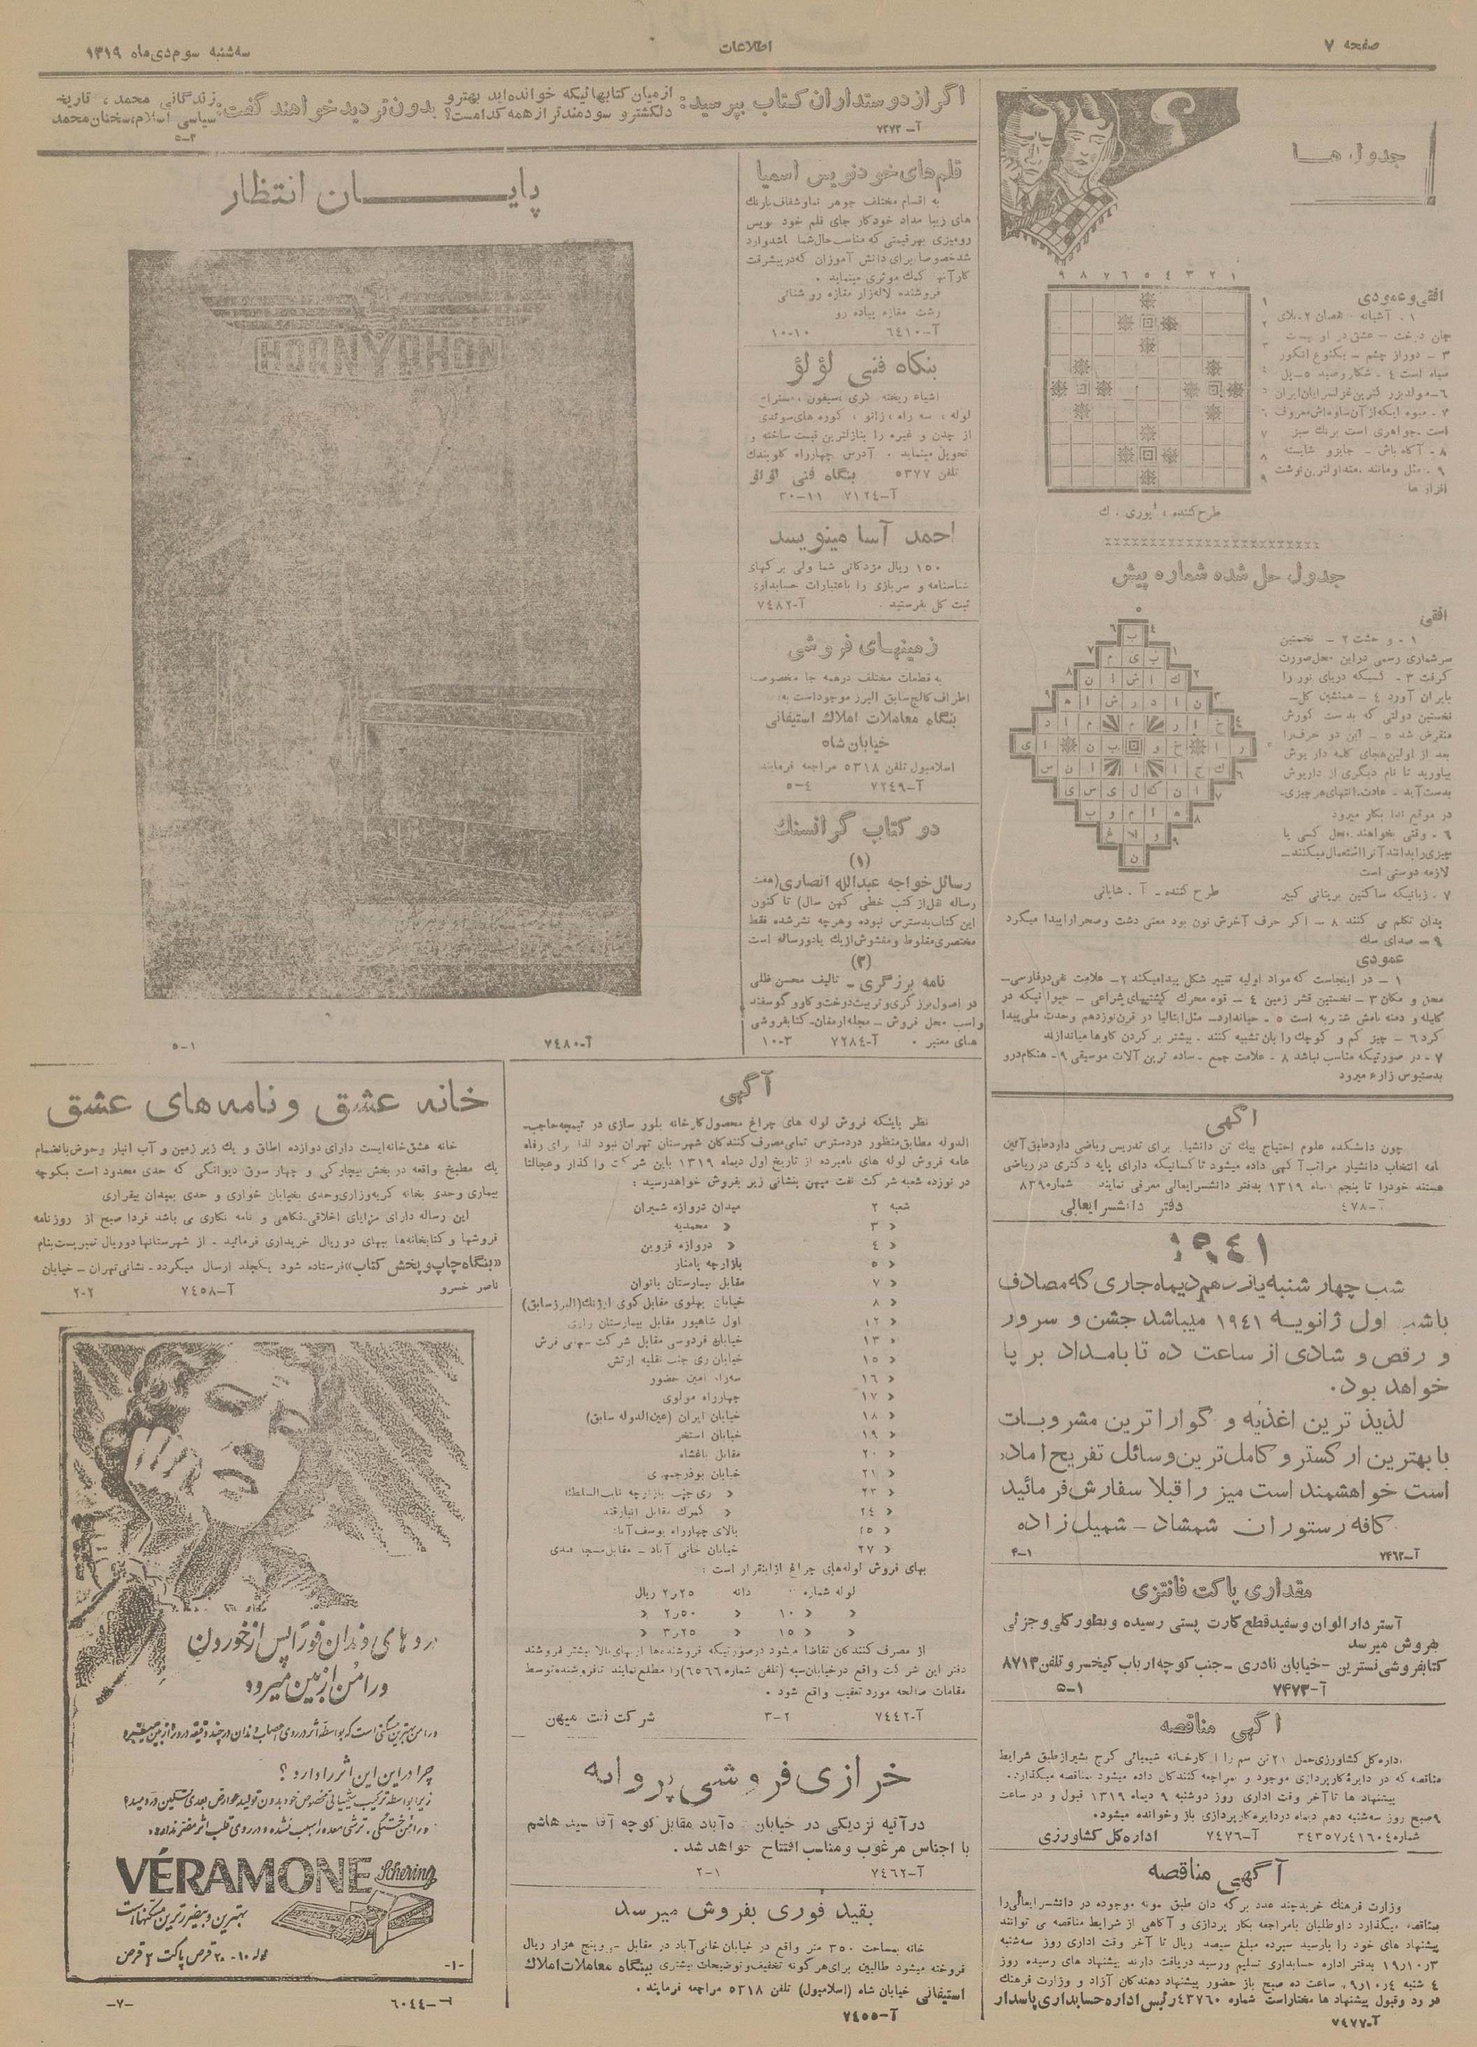 صفحه ۷
اطلاعات
سه‌شنبه سوم دی ماه ۱۳۱۹
اگر از دوستداران کتاب بپرسید:
از میان کتابهائیکه خوانده‌اید بهتر و
دلکشتر و سودمندتر از همه کدامست؟
بدون تردید خواهند گفت:
زندگانی محمد، تاریخ
سیاسی اسلام، سخنان محمد
آ-۷۲۷۳
۵-۳
جدول ها
۹ ۸ ۷ ۶ ۵ ۴ ۳ ۲ ۱
افقی و عمودی
۱ - آشیانه - همسان ۲ - بلای
جان درخت - عشق در او نیست
۳ - دور از چشم - یکنوع انگور
سیاه است ۴ - شکار و صید ۵ - پل
۶ - مولد بزرگترین غزلسرایان ایران
۷ - میوه اینکه از آن ساوه‌اش معروف
است. جواهری است برنگ سبز
۸ - آگاه باش - جایز و شایسته
۹ - مثل و مانند. متداولترین نوشت
افزار ها
جدول حل شده شماره پیش
افقی
۱ - و حشت ۲ - نخستین
سرشماری رسمی در این محل صورت
گرفت ۳ - کسیکه دریای نور را
بایران آورد ۴ - همنشین گل -
نخستین دولتی که بدست کورش
منقرض شد ۵ - این دو حرف را
بعد از اولین هجای کلمه داریوش
بیاورید تا نام دیگری از داریوش
بدست آید - عادت. انتهای هر چیزی -
در موقع ندا بکار میرود
۶ - وقتی بخواهند محل کسی یا
چیزی را بدانند آنرا استعمال میکنند -
لازمه دوستی است
۷ - زبانیکه ساکنین بریتانی کبیر
طرح کننده - آ. شایانی
بدان تکلم می کنند ۸ - اگر حرف آخرش نون بود معنی دشت و صحرا را پیدا میکرد
۹ - صدای سگ
عمودی
۱ - در اینجاست که مواد اولیه تغییر شکل پیدا میکند ۲ - علامت نفی در فارسی -
محل و مکان ۳ - نخستین قشر زمین ۴ - قوه محرک کشتیهای شراعی - حیوانیکه در
کلیله و دمنه نامش شتربه است ۵ - حیاندارد - مثل ایتالیا در قرن نوزدهم وحدت ملی پیدا
کرد ۶ - چیز کم و کوچک را بان تشبیه کنند - بیشتر بر گردن گاوها میاندازند
۷ - در صورتیکه مناسب نباشد ۸ - علامت جمع - ساده ترین آلات موسیقی ۹ - هنگام درو
بدستبوس زارع میرود
آگهی
چون دانشکده علوم احتیاج بیک تن دانشیار برای تدریس ریاضی دارد طبق آئین
نامه انتخاب دانشیار مراتب آگهی داده میشود تا کسانیکه دارای پایه دکتری در ریاضی
هستند خود را تا پنجم دیماه ۱۳۱۹ بدفتر دانشسرایعالی معرفی نمایند شماره ۸۳۹۰
دفتر دانشسرایعالی
۱۹۴۱
شب چهارشنبه یازدهم دیماه جاری که مصادف
باشب اول ژانویه ۱۹۴۱ میباشد جشن و سرور
و رقص و شادی از ساعت ده تا بامداد بر پا
خواهد بود.
لذیذ ترین اغذیه و گوارا ترین مشروبات
با بهترین ارکستر و کامل‌ترین وسائل تفریح آماده
است خواهشمند است میز را قبلا سفارش فرمائید
کافه رستوران شمشاد - شمیل زاده
آ-۷۴۶۳
۴-۱
مقداری پاکت فانتزی
آستر دار الوان و سفید قطع کارت پستی رسیده و بطور کلی و جزئی
بفروش میرسد
کتابفروشی نسترین - خیابان نادری - جنب کوچه ارباب کیخسرو تلفن ۸۷۱۳
آ-۷۴۷۳
۵-۱
آگهی مناقصه
اداره کل کشاورزی حمل ۲۱ تن سم را از کارخانه شیمیائی کرج بشیراز طبق شرایط
مناقصه که در دایره کارپردازی موجود و بمراجعه کنندگان داده میشود بمناقصه میگذارد.
پیشنهاد ها تا آخر وقت اداری روز دوشنبه ۹ دیماه ۱۳۱۹ قبول و در ساعت
۹ صبح روز سه‌شنبه دهم دیماه در دایره کارپردازی باز و خوانده میشود.
شماره ۳۴۳۵۷٫۴۱۶۰۴
آ-۷۴۷۶
اداره کل کشاورزی
آگهی مناقصه
وزارت فرهنگ خرید چند عدد برگه دان طبق نمونه موجوده در دانشسرایعالی را
بمناقصه میگذارد داوطلبان بامراجعه بکار پردازی و آگاهی از شرایط مناقصه می توانند
پیشنهاد های خود را بارسید سپرده مبلغ سیصد ریال تا آخر وقت اداری روز سه‌شنبه
۱۹٫۱۰٫۳ بدفتر اداره حسابداری تسلیم ورسید دریافت دارند پیشنهاد های رسیده روز
۴ شنبه ۱۹٫۱۰٫۴ ساعت ده صبح باز حضور پیشنهاد دهندگان آزاد و وزارت فرهنگ
در رد و قبول پیشنهاد ها مختار است شماره ۴۳۷۶۰ رئیس اداره حسابداری پاسدار
آ-۷۴۷۷
قلم‌های خودنویس اسمیا
به اقسام مختلف جوهر نما و شفاف بارنگ
های زیبا مداد خودکار جای قلم خود نویس
رومیزی بهر قیمتی که مناسب حال شما باشد وارد
شد خصوصا برای دانش آموزان که در پیشرفت
کار آنها کمک موثری مینماید.
فروشنده لاله‌زار مغازه روشنائی
رشت مغازه پیاده رو
آ-۶۴۱۰
۱۰-۱۰
بنگاه فنی لؤلؤ
لوله، سه راه، زانو، کوره های سوئدی
از چدن و غیره را بنازلترین قیمت ساخته و
تحویل مینماید. آدرس چهارراه کلوبندک
تلفن ۵۳۷۷ بنگاه فنی لؤلؤ
آ-۷۱۲۴
۳۰-۱۱
احمد آسا مینویسد
۱۵۰ ریال مژدگانی شما ولی برگهای
شناسنامه و سربازی را باعتبارات حسابداری
ثبت کل بفرستید.
آ-۷۴۸۲
زمینهای فروشی
به قطعات مختلف درهمه جا مخصوصا
اطراف کالج سابق البرز موجود است به:
بنگاه معاملات املاک استیفانی
خیابان شاه
اسلامبول تلفن ۵۳۱۸ مراجعه فرمایند
آ-۷۲۴۹
۵-۴
دو کتاب گرانسنگ
(۱)
رسائل خواجه عبدالله انصاری (هفت
رساله نقل از کتب خطی کهن سال) تا کنون
این کتاب بدسترس نبوده و هرچه نشر شده فقط
مختصری مغلوط و مغشوش از یک یا دو رساله است
(۲)
نامه برزگری - تالیف محسن ظلی
در اصول برزگری و تربیت درخت و گاو و گوسفند
واسب محل فروش - مجله ارمغان - کتابفروشی
های معتبر.
آ-۷۲۸۴
۱۰-۳
پایان انتظار
HORNYPHON
آ-۷۴۸۰
۵-۱
خانه عشق و نامه های عشق
خانه عشق خانه ایست دارای دوازده اطاق و یک زیر زمین و آب انبار و حوض بانضمام
یک مطبخ واقعه در بخش بیچارگی و چهار سوق دیوانگی که حدی محدود است بکوچه
بیماری وحدی بخانه گریه وزاری وحدی بخیابان خواری و حدی بمیدان بیقراری
این رساله دارای مزایای اخلاقی فکاهی و نامه نگاری می باشد فردا صبح از روزنامه
فروشها و کتابخانه‌ها ببهای دو ریال خریداری فرمائید - از شهرستانها دو ریال تمبر پست بنام
«بنگاه چاپ و پخش کتاب» فرستاده شود یکجلد ارسال میگردد - نشانی تهران - خیابان
ناصر خسرو
آ-۷۴۵۸
۲-۲
آگهی
نظر باینکه فروش لوله های چراغ محصول کارخانه بلور سازی در تیمچه حاجب
الدوله مطابق منظور در دسترس تمامی مصرف کنندگان شهرستان تهران نبود لذا برای رفاه
عامه فروش لوله های نامبرده از تاریخ اول دیماه ۱۳۱۹ باین شرکت واگذار و عجالتا
در نوزده شعبه شرکت نفت میهن بنشانی زیر بفروش خواهد رسید:
شعبه ۲ میدان دروازه شمیران
« ۳ « محمدیه
« ۴ « دروازه قزوین
« ۵ بازارچه پامنار
« ۷ مقابل بیمارستان بانوان
« ۸ خیابان پهلوی مقابل کوی ارژنگ (البرز سابق)
« ۱۲ اول شاهپور مقابل بیمارستان رازی
« ۱۳ خیابان فردوسی مقابل شرکت سهامی فرش
« ۱۵ خیابان ری جنب نقلیه ارتش
« ۱۶ سه‌راه امین حضور
« ۱۷ چهارراه مولوی
« ۱۸ خیابان ایران (عین الدوله سابق)
« ۱۹ خیابان استخر
« ۲۰ مقابل باغشاه
« ۲۱ خیابان بوذرجمهری
« ۲۳ « ری جنب بازارچه نایب السلطنه
« ۲۴ « گمرک مقابل انبار قند
« ۲۵ بالای چهارراه یوسف آباد
« ۲۷ خیابان خانی آباد -
بهای فروش لوله‌های چراغ از اینقرار است:
لوله شماره دانه ۲٫۲۵ ریال
« « ۱۰ « ۲٫۵۰ «
« « ۱۵ « ۳٫۲۵ «
از مصرف کنندگان تقاضا میشود درصورتیکه فروشنده‌ها از بهای بالا بیشتر فروشند
دفتر این شرکت واقع در خیابان سپه (تلفن شماره ۶۵۶۶) را مطلع نمایند تا فروشنده توسط
مقامات صالحه مورد تعقیب واقع شود.
آ-۷۴۴۲
۳-۲
شرکت نفت میهن
خرازی فروشی پروانه
در آتیه نزدیکی در خیابان مقابل کوچه آقا سید هاشم
با اجناس مرغوب و مناسب افتتاح خواهد شد.
آ-۷۴۶۲
۲-۱
بقید فوری بفروش میرسد
خانه بمساحت ۳۵۰ متر واقع در خیابان خانی آباد در مقابل سی و پنج هزار ریال
فروخته میشود طالبین برای هر گونه تخفیف و توضیحات بیشتری ببنگاه معاملات املاک
استیفانی خیابان شاه (اسلامبول) تلفن ۵۳۱۸ مراجعه فرمایند.
آ-۷۴۵۵
دردهای دندان فوراً پس از خوردن
ورامُن از بین میرود
چرا ورامن این اثر را دارد؟
VÉRAMONE
Schering
بهترین و بیضررترین مسکنهاست
لوله ۱۰-۲۰ قرص پاکت ۲ قرص
-۱-
آ-۶۰۴۴
-۷-